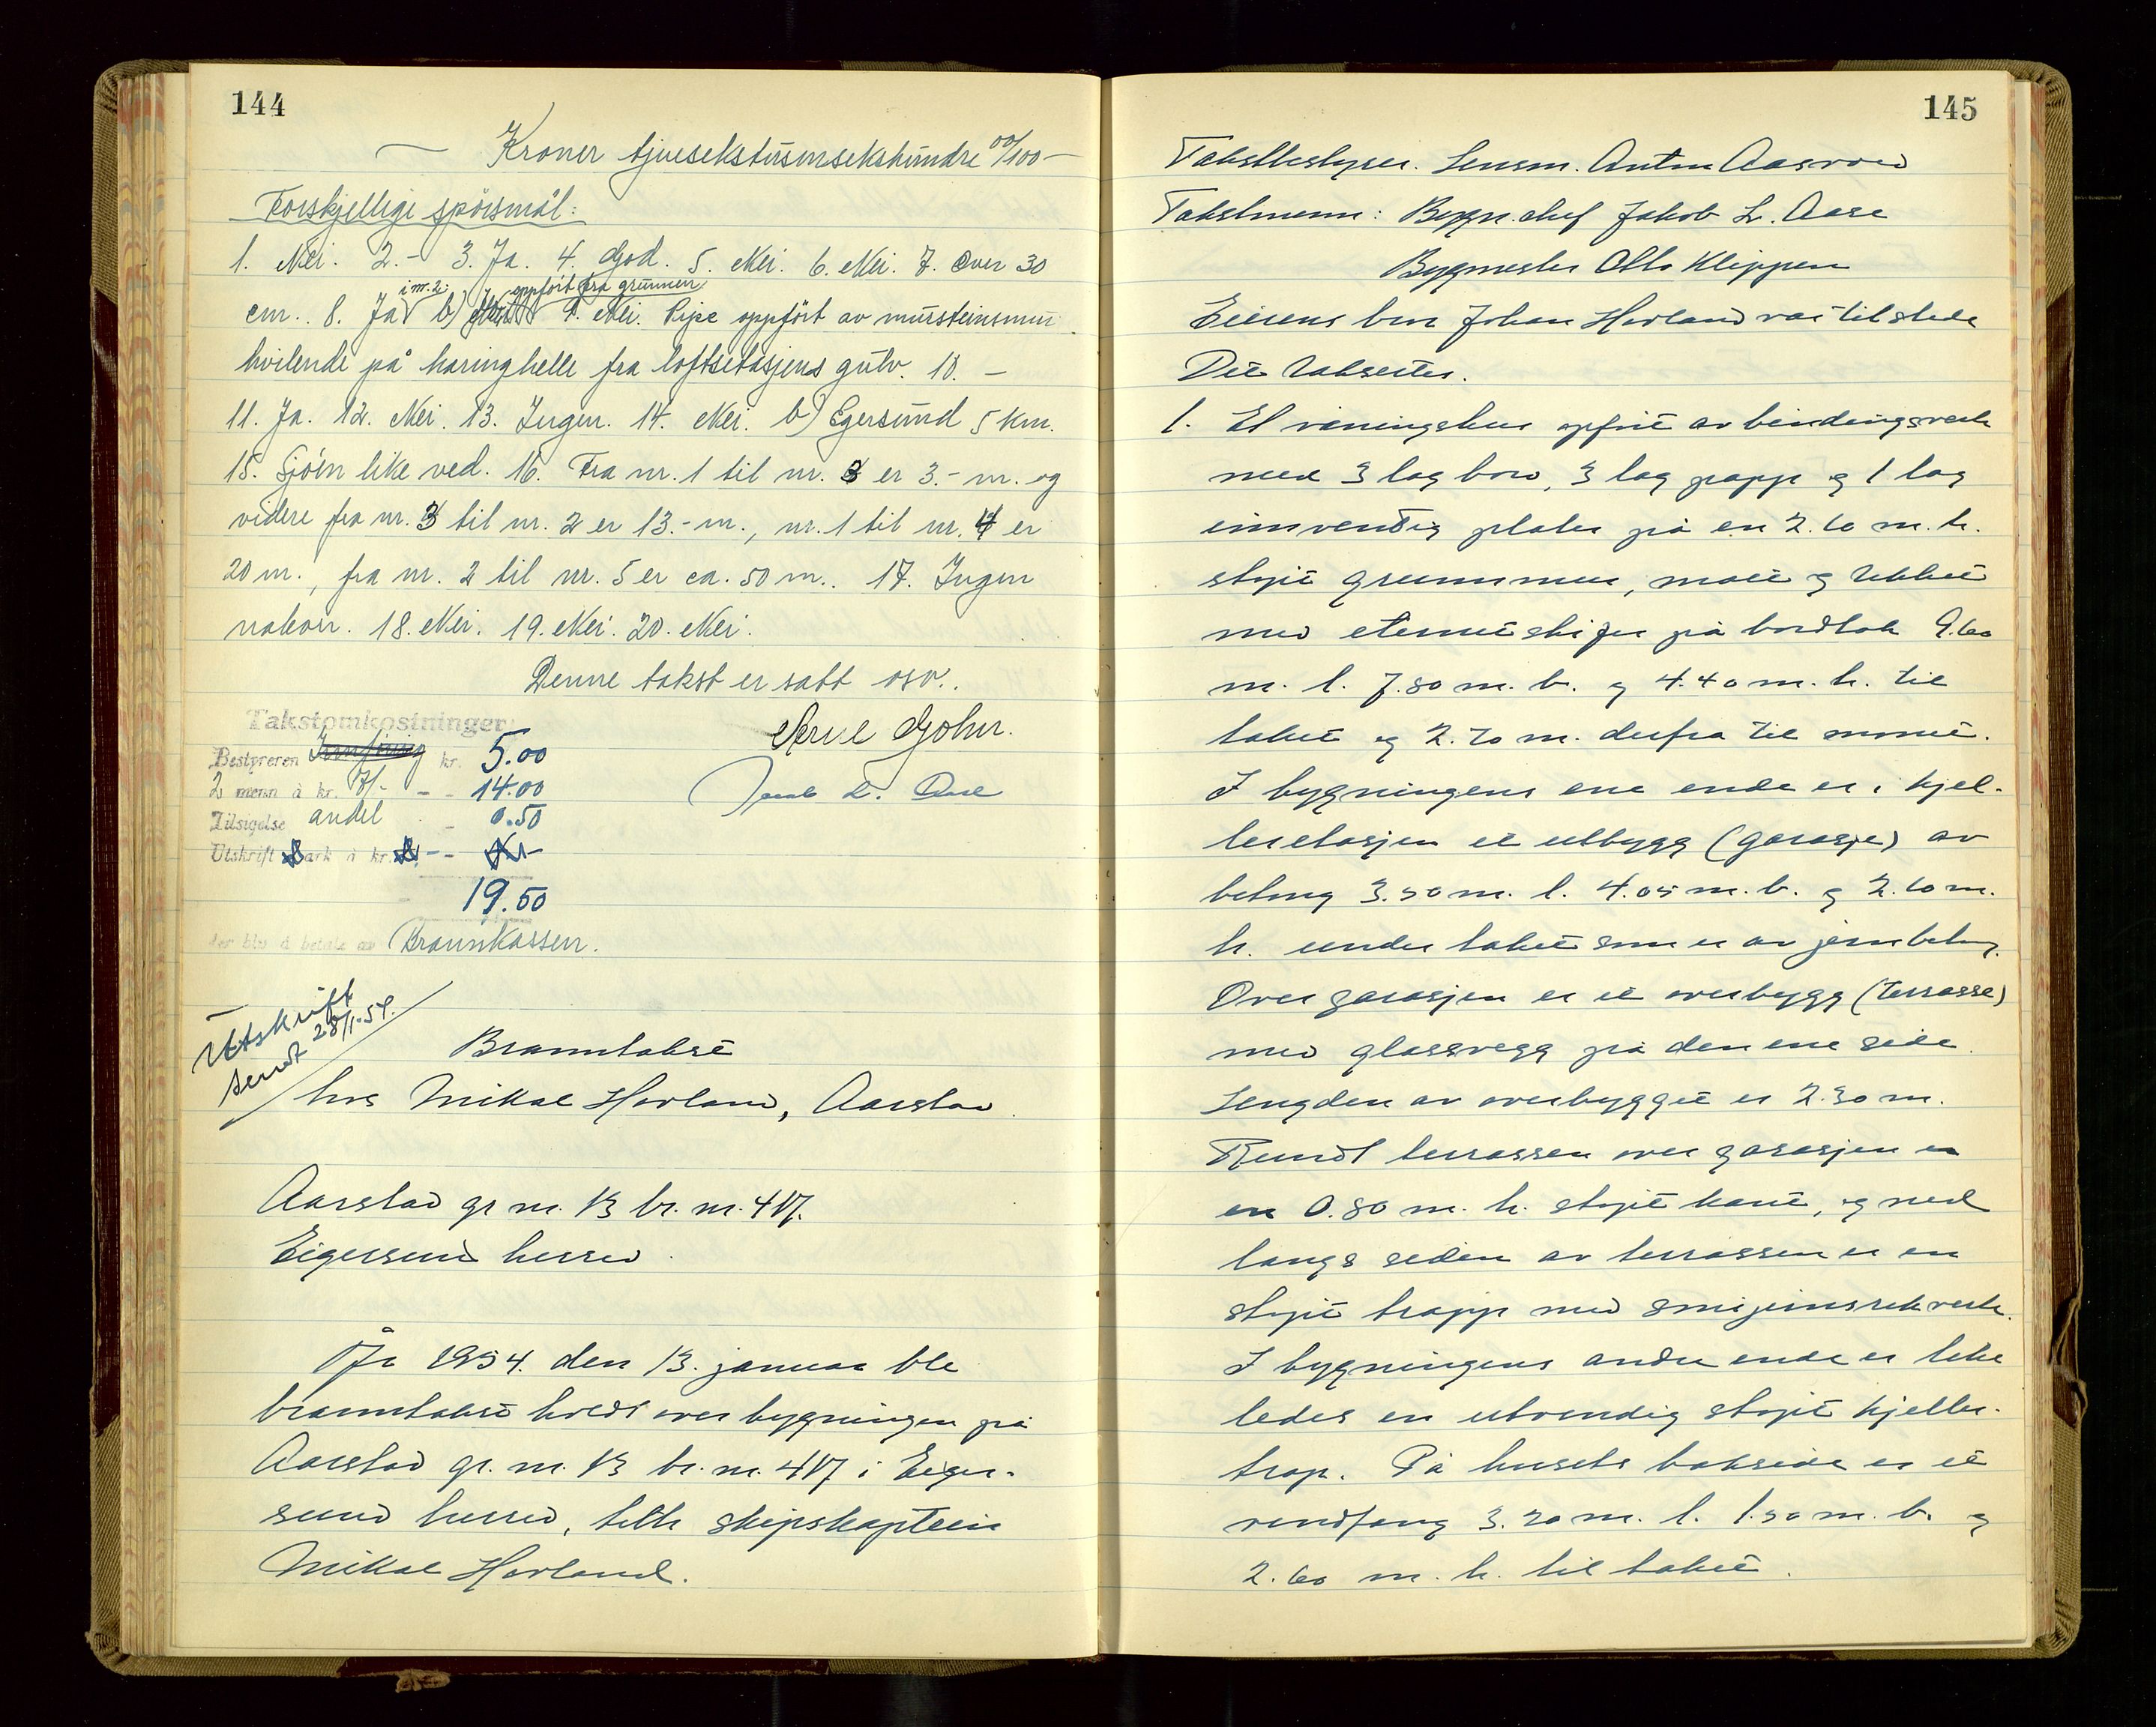 144
— Kroner tjueseks­tusenseks­hundre 00/100 —
Forskjellige spörsmål:
1. Nei. 2. - 3. Ja. 4. God. 5. Nei. 6. Nei. 7. Over 30
i nr. 2: oppfört fra grunnen
cm.. 8. Ja b) 9. Nei. Pipe oppfört av mursteinsmur
hvilende på haringhelle fra loftsetasjens gulv. 10. -
11. Ja. 12. Nei. 13. Ingen. 14. Nei. b) Egersund 5 km.
15. Sjöen like ved. 16. Fra nr. 1 til nr. 3 er 3.- m. og
videre fra nr. 3 til nr. 2 er 13.- m., nr. 1 til nr. 4 er
20 m., fra nr. 2 til nr. 5 er ca. 50 m.. 17. Ingen
naboer. 18. Nei. 19. Nei. 20. Nei.
Denne takst er satt osv..
Takstomkostninger:
Arne Gohn.
Bestyreren kr. 5.00
2 menn à kr. 7/- - - 14.00
Jacob L. Aase
Tilsigelse andel - 0.50
Utskrift ark à kr. - -
19.50
der blir å betale av Brannkassen.
Utskrift
sendt 28/1-54.
Branntakst
hos Mikal Hovland, Aarstad.
Aarstad gr. nr. 13 br. nr. 417.
Eigersund herred.
År 1954. den 13. januar ble
branntakst holdt over bygningen på
Aarstad gr. nr. 13 br. nr. 417 i Eiger-
sund herred, tilh. skipskaptein
Mikal Hovland.
145
Takstbestyrer. Lensm. Anton Aasved
Takstmenn: Bygn.chef Jakob L. Aase
Bygmester Otto Kleppen
Eierens bror Johan Hovland var tilstede
Det takseres.
1. Et våningshus opført av bindingsverk
med 3 lag bord, 3 lag papp og 1 lag
innvendig plater på en 2.60 m. h.
støpt grunnmur, malt og tekket
med eternitskifer på bordtak 9.60
m. l. 7.80 m. b. og 4.40 m. h. til
taket og 2.70 m. derfra til mønet.
I bygningens ene ende er i kjel-
leretasjen et utbygg (garasje) av
betong 3.50 m. l. 4.05 m. b. og 2.60 m.
h. under taket som er av jernbetong.
Over garasjen er et overbygg (terrasse)
med glassvegg på den ene side.
Lengden av overbygget er 2.30 m.
Rundt terrassen over garasjen er
en 0.80 m. h. støpt kant, og ned
langs siden av terrassen er en
støpt trapp med smijernsrekverk.
I bygningens andre ende er like
ledes en utvendig støpt kjeller-
trap. På husets bakside er et
vindfang 3.20 m. l. 1.50 m. b. og
2.60 m. h. til taket.